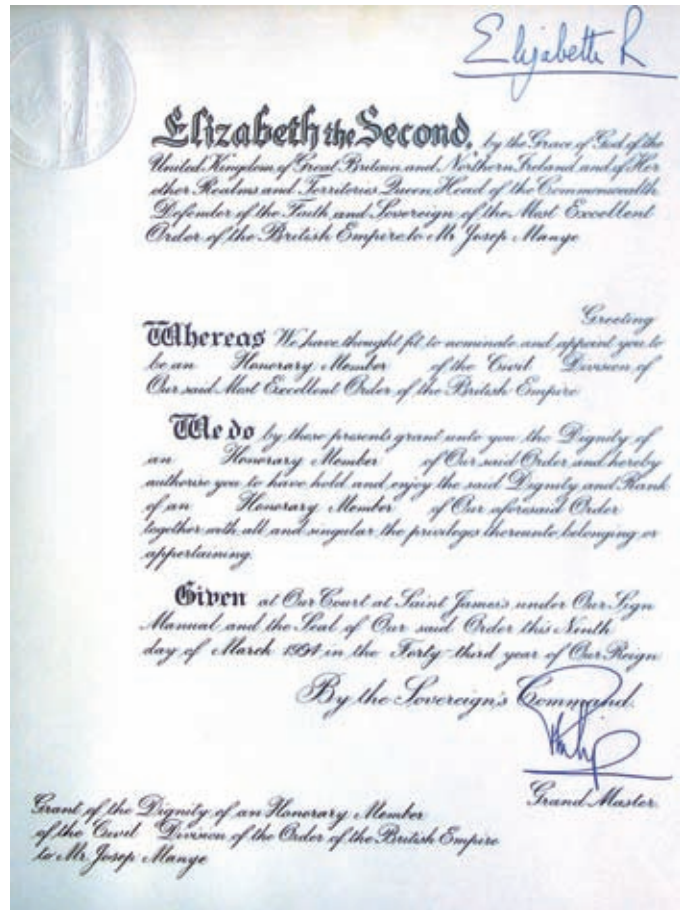 Elizabeth R
Elizabeth the Second, by the Grace of God of the
United Kingdom of Great Britain and Northern Ireland and of Her
other Realms and Territories Queen, Head of the Commonwealth,
Defender of the Faith and Sovereign of the Most Excellent
Order of the British Empire to Mr Josep Manye
Greeting
Whereas We have thought fit to nominate and appoint you to
be an Honorary Member of the Civil Division of
Our said Most Excellent Order of the British Empire
We do by these presents grant unto you the Dignity of
an Honorary Member of Our said Order and hereby
authorise you to have hold and enjoy the said Dignity and Rank
of an Honorary Member of Our aforesaid Order
together with all and singular the privileges thereunto belonging or
appertaining.
Given at Our Court at Saint James's under Our Sign
Manual and the Seal of Our said Order this Ninth
day of March 1994 in the Forty third year of Our Reign
By the Sovereign's Command.
Philip
Grand Master.
Grant of the Dignity of an Honorary Member
of the Civil Division of the Order of the British Empire
to Mr. Josep Manye